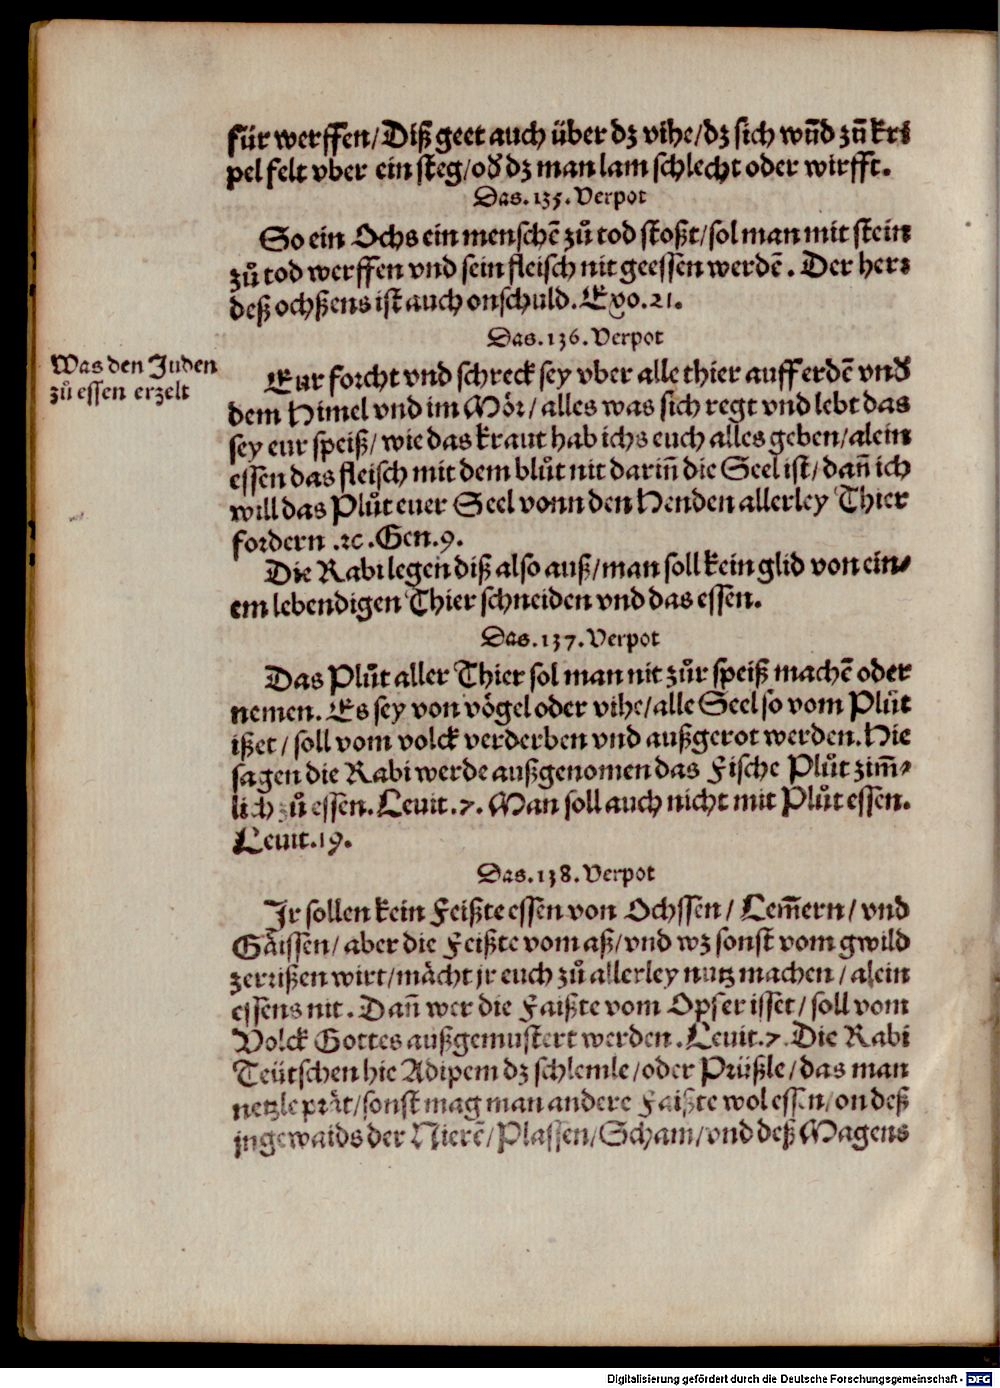 für werffen/Diß geet auch über dz vihe/dz sich wūd zū kri
pel felt vber ein steg/od dz man lam schlecht oder wirfft.
Das.135.Verpot
So ein Ochs ein menschē zů tod stoßt/sol man mit stein
zů tod werffen vnd sein fleisch nit geessen werdē. Der herr
deß ochßens ist auch onschuld. Exo.21.
Das.136.Verpot
Was den Juden
zů essen erzelt
Eur forcht vnd schreck sey vber alle thier auff erdē vnd
dem Himel vnd im Mör/alles was sich regt vnd lebt das
sey eur speiß/wie das kraut hab ichs euch alles geben/alein
essen das fleisch mit dem blůt nit dariñ die Seel ist/dañ ich
will das Plůt euer Seel vonn den Henden allerley Thier
fordern.ꝛc.Gen.9.
Die Rabi legen diß also auß/man soll kein glid von ein⸗
em lebendigen Thier schneiden vnd das essen.
Das.137.Verpot
Das Plůt aller Thier sol man nit zůr speiß machē oder
nemen. Es sey von vögel oder vihe/alle Seel so vom Plůt
ißet/soll vom volck verderben vnd außgerot werden. Hie
sagen die Rabi werde außgenomen das Fische Plůt zim̄⸗
lich zů essen. Leuit.7. Man soll auch nicht mit Plůt essen.
Leuit.19.
Das.138.Verpot
Jr sollen kein Feißte essen von Ochssen/Lem̄ern/vnd
Gäissen/aber die Feißte vom aß/vnd wz sonst vom gwild
zerrißen wirt/mächt jr euch zů allerley nutz machen/alein
essens nit. Dañ wer die Faißte vom Opfer isset/soll vom
Volck Gottes außgemustert werden. Leuit.7. Die Rabi
Teütschen hie Adipem dz schlemle/oder Prüßle/das man
netzle prät/sonst mag man andere Faißte wol essen/on deß
jngewaids der Nierē/Plassen/Scham/vnd deß Magens
Digitalisierung gefördert durch die Deutsche Forschungsgemeinschaft - DFG